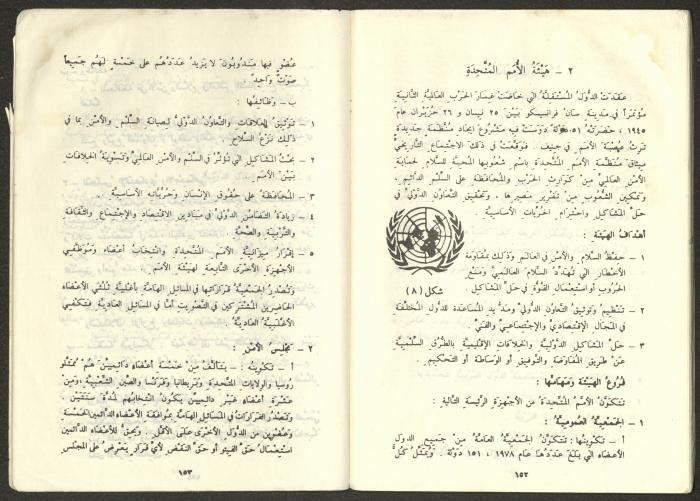 ٢ - هَيْئَةُ الأُمَمِ المُتَّحِدَةِ
عقدت الدول المستقلة التي خاضت غمار الحرب العالمية الثانية
مؤتمراً في مدينة سان فرانسيسكو بين ٢٥ نيسان و ٢٦ حزيران عام
١٩٤٥ ، حضرته ٥١ دولة درست فيه مشروع ايجاد منظمة جديدة
ترث عصبة الأمم في جنيف . فوقعت في ذلك الاجتماع التاريخي
ميثاق منظمة الأمم المتحدة باسم شعوبها المحبة للسلام لحماية
الأمن العالمي من كوارث الحرب والمحافظة على السلم الدائم ،
وتمكين الشعوب من تقرير مصيرها ، وتحقيق التعاون الدولي في
حل المشاكل واحترام الحريات الأساسية .
أهداف الهيئة :
١ - حفظ السلام والأمن في العالم وذلك بمقاومة
الأخطار التي تهدد السلام العالمي ومنع
الحروب أو استعمال القوة في حل المشاكل .
شكل (٨)
٢ - تنظيم وتوثيق التعاون الدولي ومد يد المساعدة للدول المختلفة
في المجال الاقتصادي والاجتماعي والفني
٣ - حل المشاكل الدولية والخلافات الإقليمية بالطرق السلمية
عن طريق المفاوضة والتوفيق أو الوساطة أو التحكيم .
فروع الهيئة ومهامها :
تتكون الأمم المتحدة من الأجهزة الرئيسة التالية :
١ - الجمعية العمومية :
أ - تكوينها : تتكون الجمعية العامة من جميع الدول
الأعضاء التي بلغ عددها عام ١٩٧٨ ، ١٥١ دولة . ويمثل كل
١٥٢
عضو فيها مندوبون لا يزيد عددهم على خمسة لهم جميعاً
صوت واحد .
ب - وظائفها :
١ - توثيق العلاقات والتعاون الدولي لصيانة السلم والأمن بما في
ذلك نزع السلاح .
٢ - بحث المشاكل التي تؤثر في السلم والأمن العالمي وتسوية الخلافات
بين الأمم
٣ - المحافظة على حقوق الإنسان وحرياته الأساسية .
٤ - زيادة التضامن الدولي في ميادين الاقتصاد والاجتماع والثقافة
والتربية والصحة .
٥ - إقرار ميزانية الأمم المتحدة وانتخاب أعضاء وموظفي
الأجهزة الأخرى التابعة لهيئة الأمم .
وتصدر الجمعية قراراتها في المسائل الهامة بأغلبية ثلثي الأعضاء
الحاضرين المشتركين في التصويت أما في المسائل العادية فتكفي
الأغلبية العادية .
٢ - مجلس الأمن :
أ - تكوينه : يتألف من خمسة أعضاء دائميين هم ممثلو
روسيا والولايات المتحدة وبريطانيا وفرنسا والصين الشعبية ومن
عشرة أعضاء غير دائميين يكون انتخابهم لمدة سنتين .
وتصدر القرارات في المسائل الهامة بموافقة الأعضاء الدائمين الخمسة
وعضوين من الدول الأخرى على الأقل . ويحق للأعضاء الدائمين
استعمال حق الفيتو أو حق النقض لأي قرار يعرض على المجلس
١٥٣